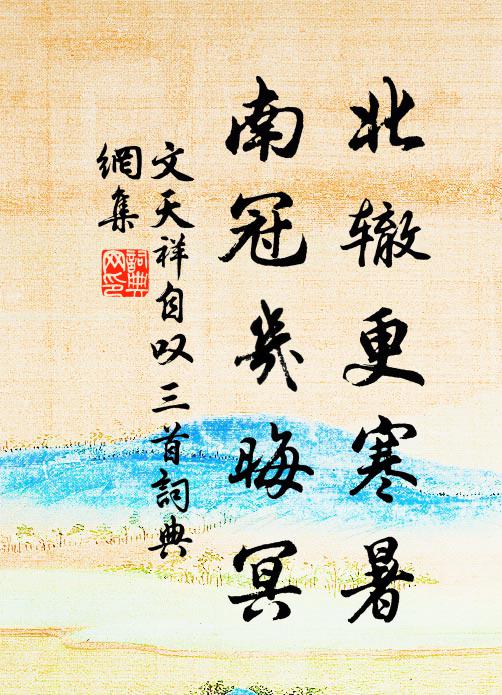 北辙更寒暑
南冠几晦冥
文天祥自叹三首詞典
網集
詞典
网印